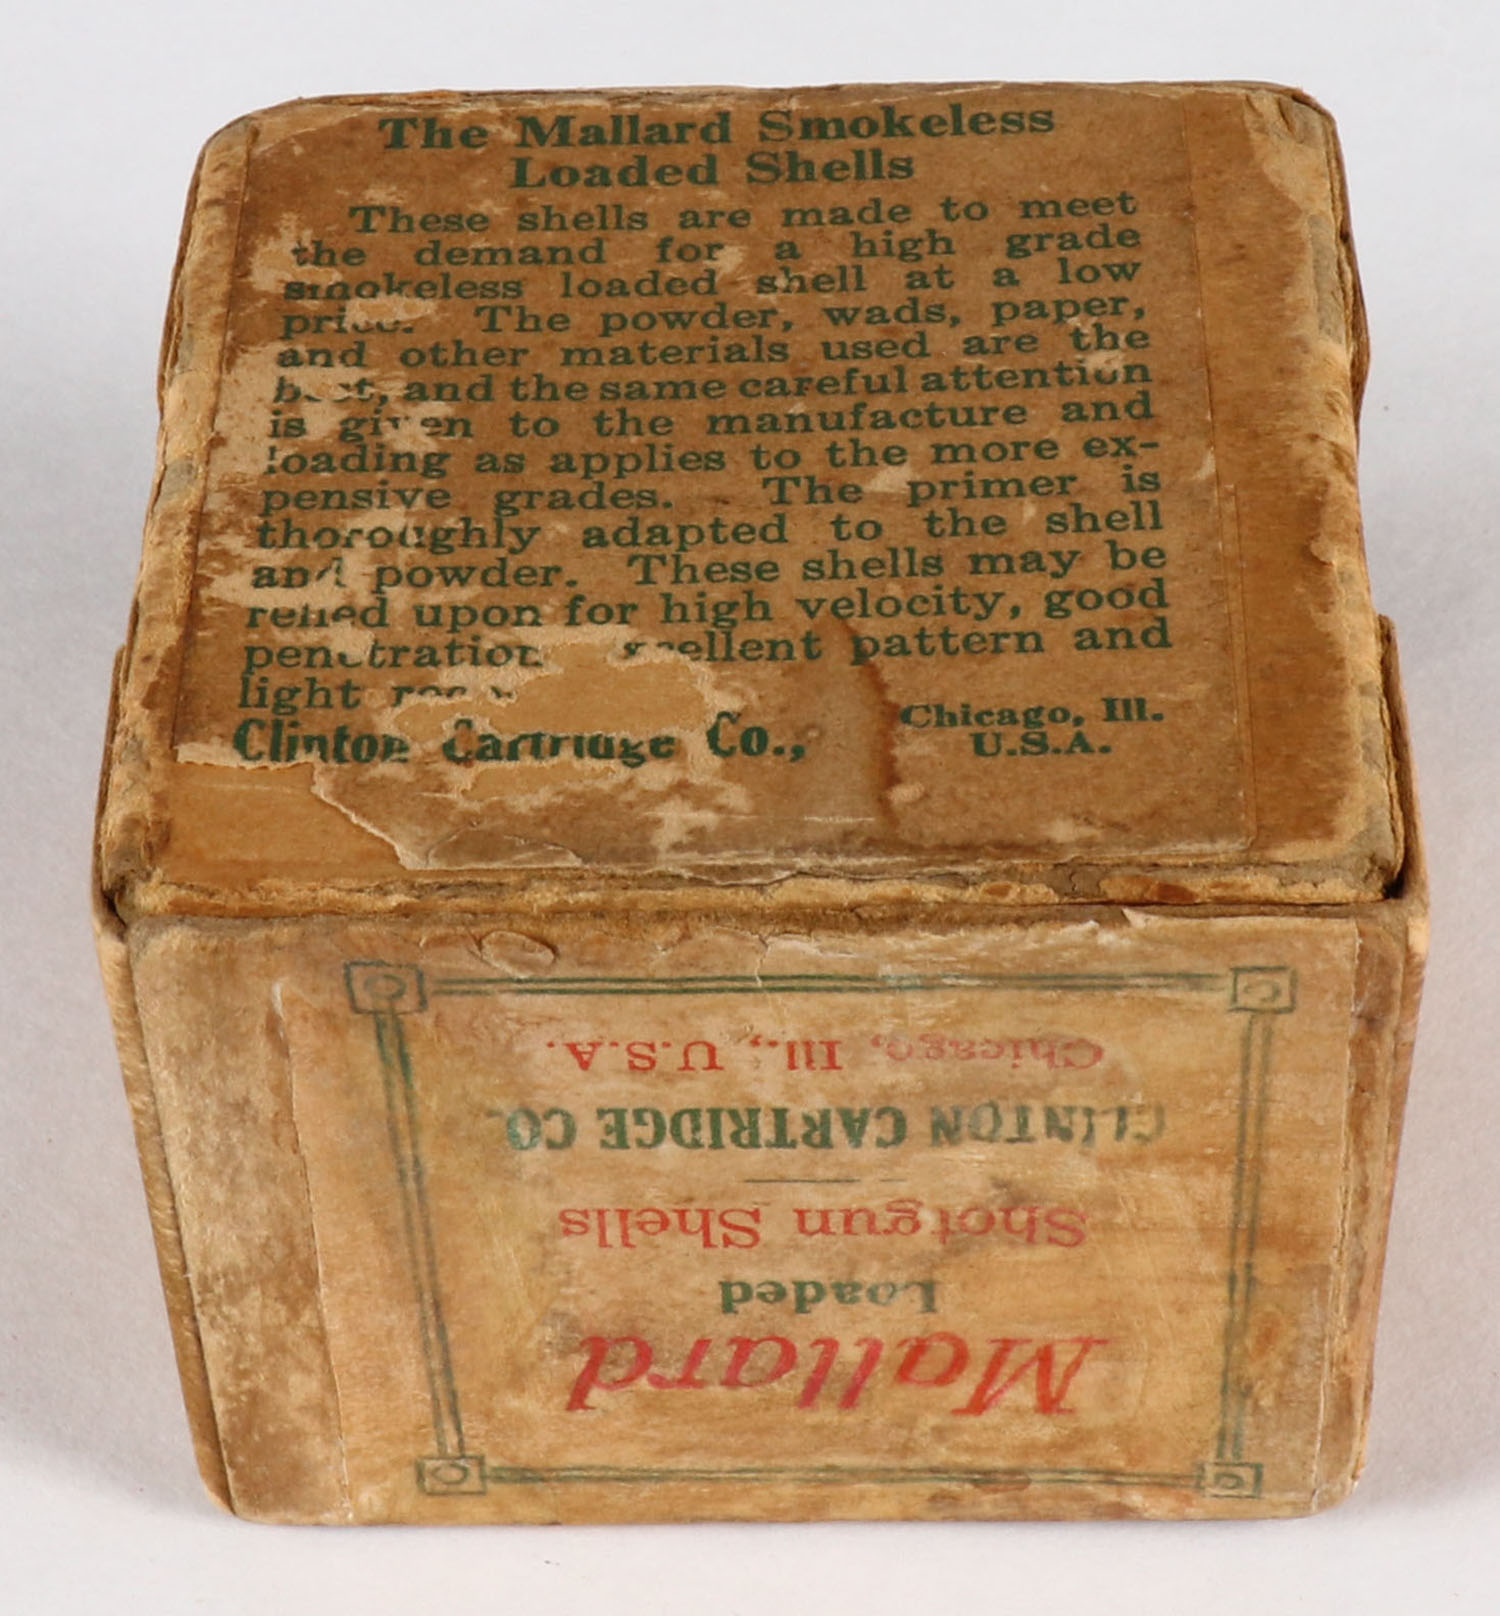 The Mallard Smokeless
Loaded Shells
These shells are made to meet
the demand for a high grade
smokeless loaded shell at a low
price. The powder, wads, paper,
and other materials used are the
best, and the same careful attention
is given to the manufacture and
loading as applies to the more ex-
pensive grades. The primer is
thoroughly adapted to the shell
and powder. These shells may be
relied upon for high velocity, good
penetration, excellent pattern and
light
Clinton Cartridge Co., Chicago, Ill.
U.S.A.
Mallard
Loaded
Shotgun Shells
CLINTON CARTRIDGE CO.
Chicago, Ill., U.S.A.